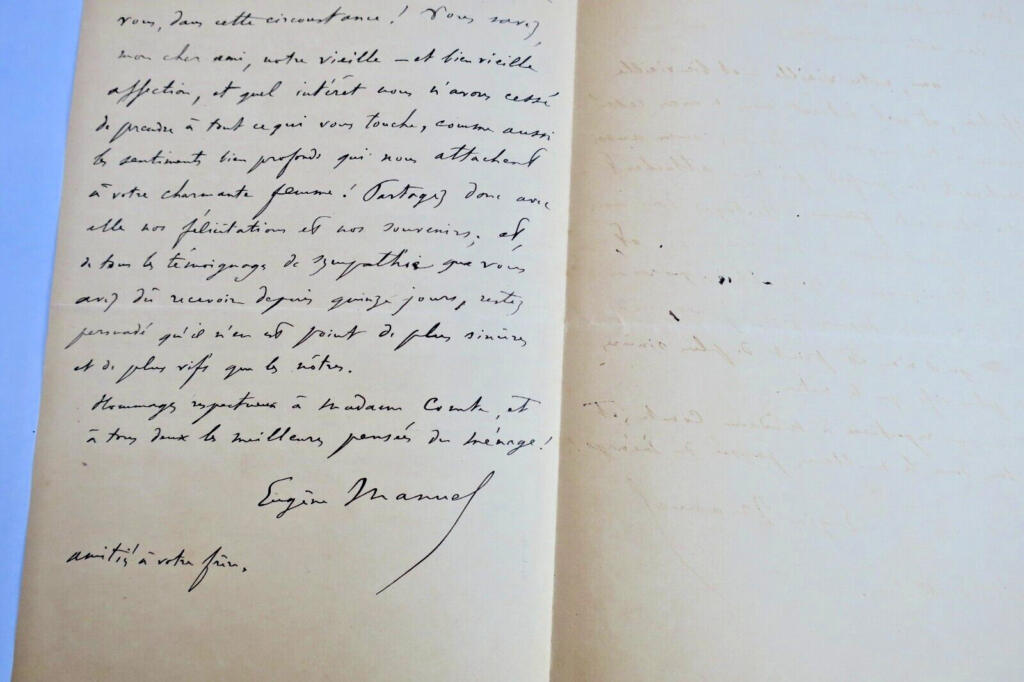 vous, dans cette circonstance ! Vous savez,
mon cher ami, notre vieille – et bien vieille
affection, et quel intérêt nous n'avons cessé
de prendre à tout ce qui vous touche, comme aussi
les sentiments bien profonds qui nous attachent
à votre charmante femme ! Partagez donc avec
elle nos félicitations et nos souvenirs, et,
de tous les témoignages de sympathie que vous
avez dû recevoir depuis quinze jours, restez
persuadé qu'il n'en est point de plus sincères
et de plus vifs que les nôtres.
Hommages respectueux à Madame Comte, et
à tous deux les meilleures pensées du ménage !
Eugène Manuel
amitiés à votre frère.